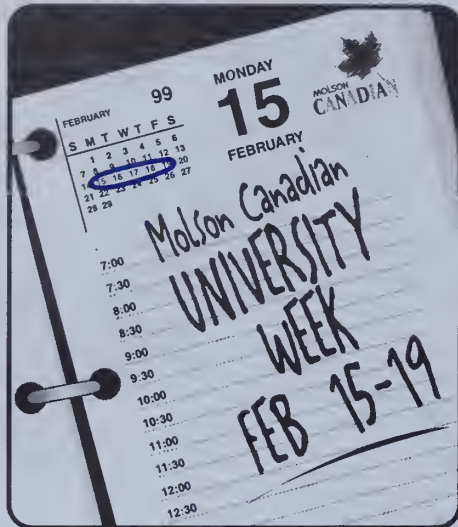 FEBRUARY 99
S M T W T F S
1 2 3 4 5 6
7 8 9 10 11 12 13
14 15 16 17 18 19 20
21 22 23 24 25 26 27
28 29
MONDAY
15
FEBRUARY
MOLSON
CANADIAN
Molson Canadian
UNIVERSITY
WEEK
FEB 15-19
7:00
7:30
8:00
8:30
9:00
9:30
10:00
10:30
11:00
11:30
12:00
12:30